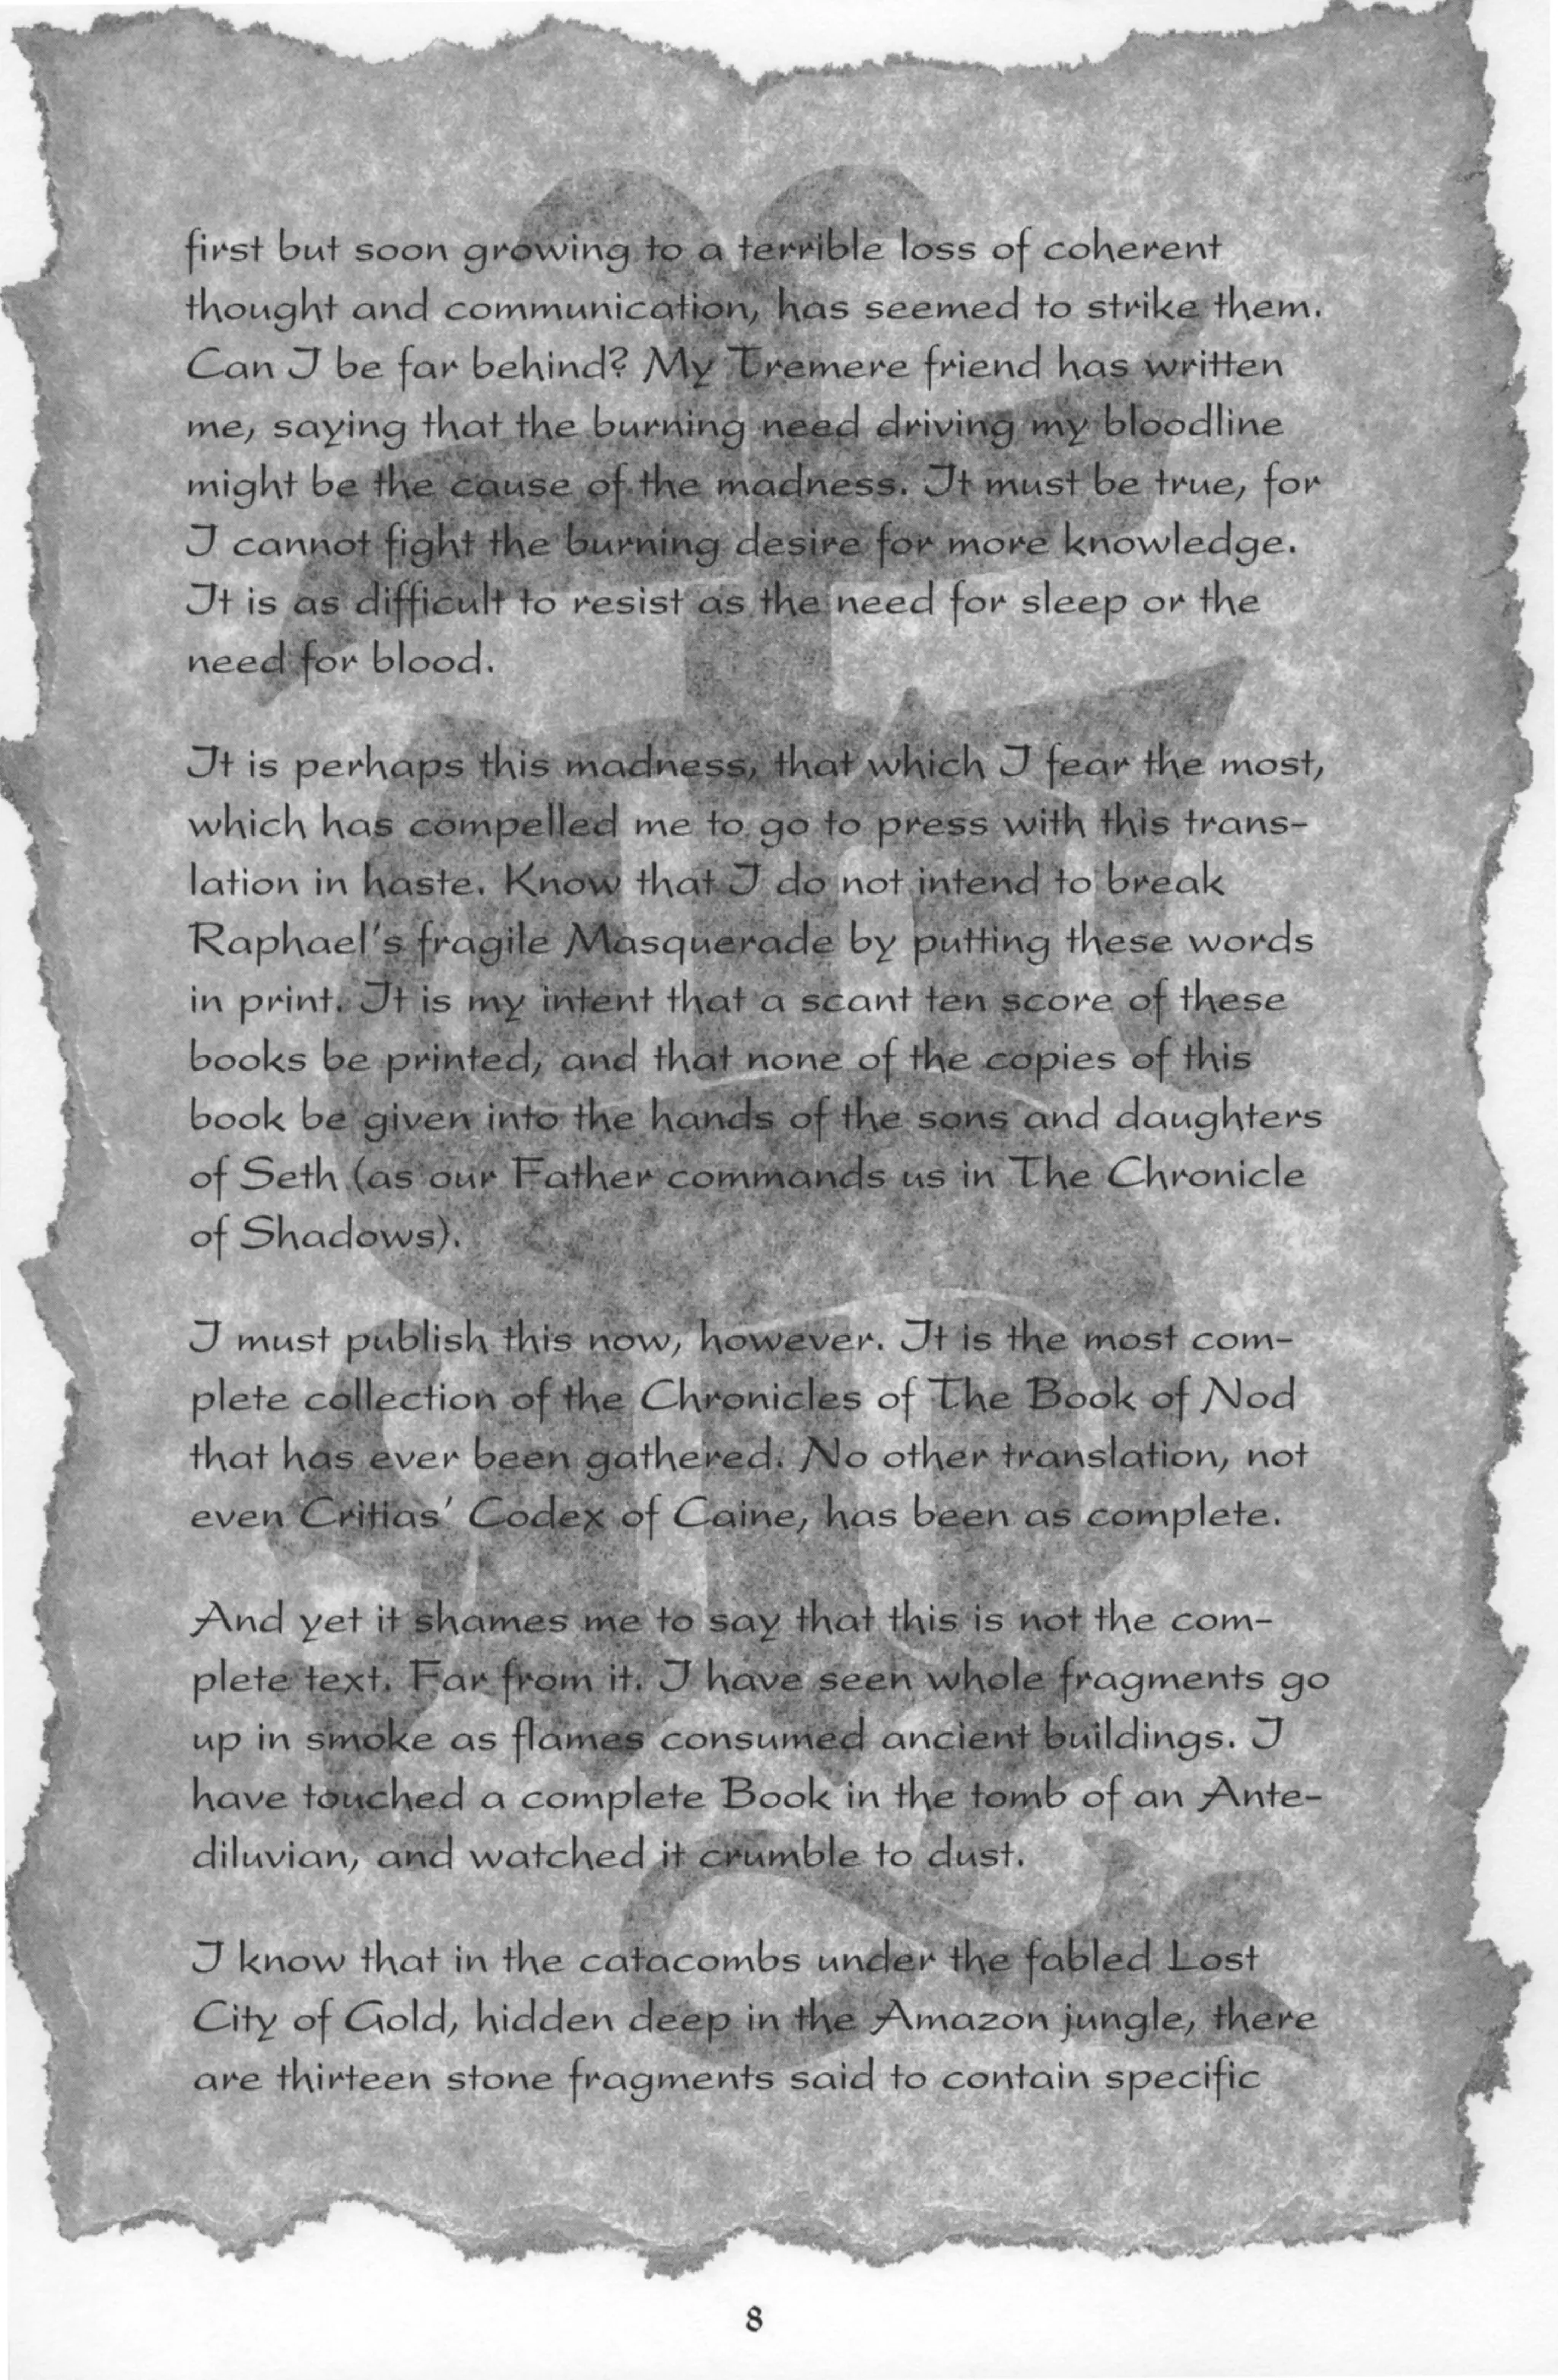 first but soon growing to a terrible loss of coherent
thought and communication, has seemed to strike them.
Can I be far behind? My Tremere friend has written
me, saying that the burning need driving my bloodline
might be the cause of the madness. It must be true, for
I cannot fight the burning desire for more knowledge.
It is as difficult to resist as the need for sleep or the
need for blood.

It is perhaps this madness, that which I fear the most,
which has compelled me to go to press with this trans-
lation in haste. Know that I do not intend to break
Raphael's fragile Masquerade by putting these words
in print. It is my intent that a scant ten score of these
books be printed, and that none of the copies of this
book be given into the hands of the sons and daughters
of Seth (as our Father commands us in The Chronicle
of Shadows).

I must publish this now, however. It is the most com-
plete collection of the Chronicles of The Book of Nod
that has ever been gathered. No other translation, not
even Critias' Codex of Caine, has been as complete.

And yet it shames me to say that this is not the com-
plete text. Far from it. I have seen whole fragments go
up in smoke as flames consumed ancient buildings. I
have touched a complete Book in the tomb of an Ante-
diluvian, and watched it crumble to dust.

I know that in the catacombs under the fabled Lost
City of Gold, hidden deep in the Amazon jungle, there
are thirteen stone fragments said to contain specific

8